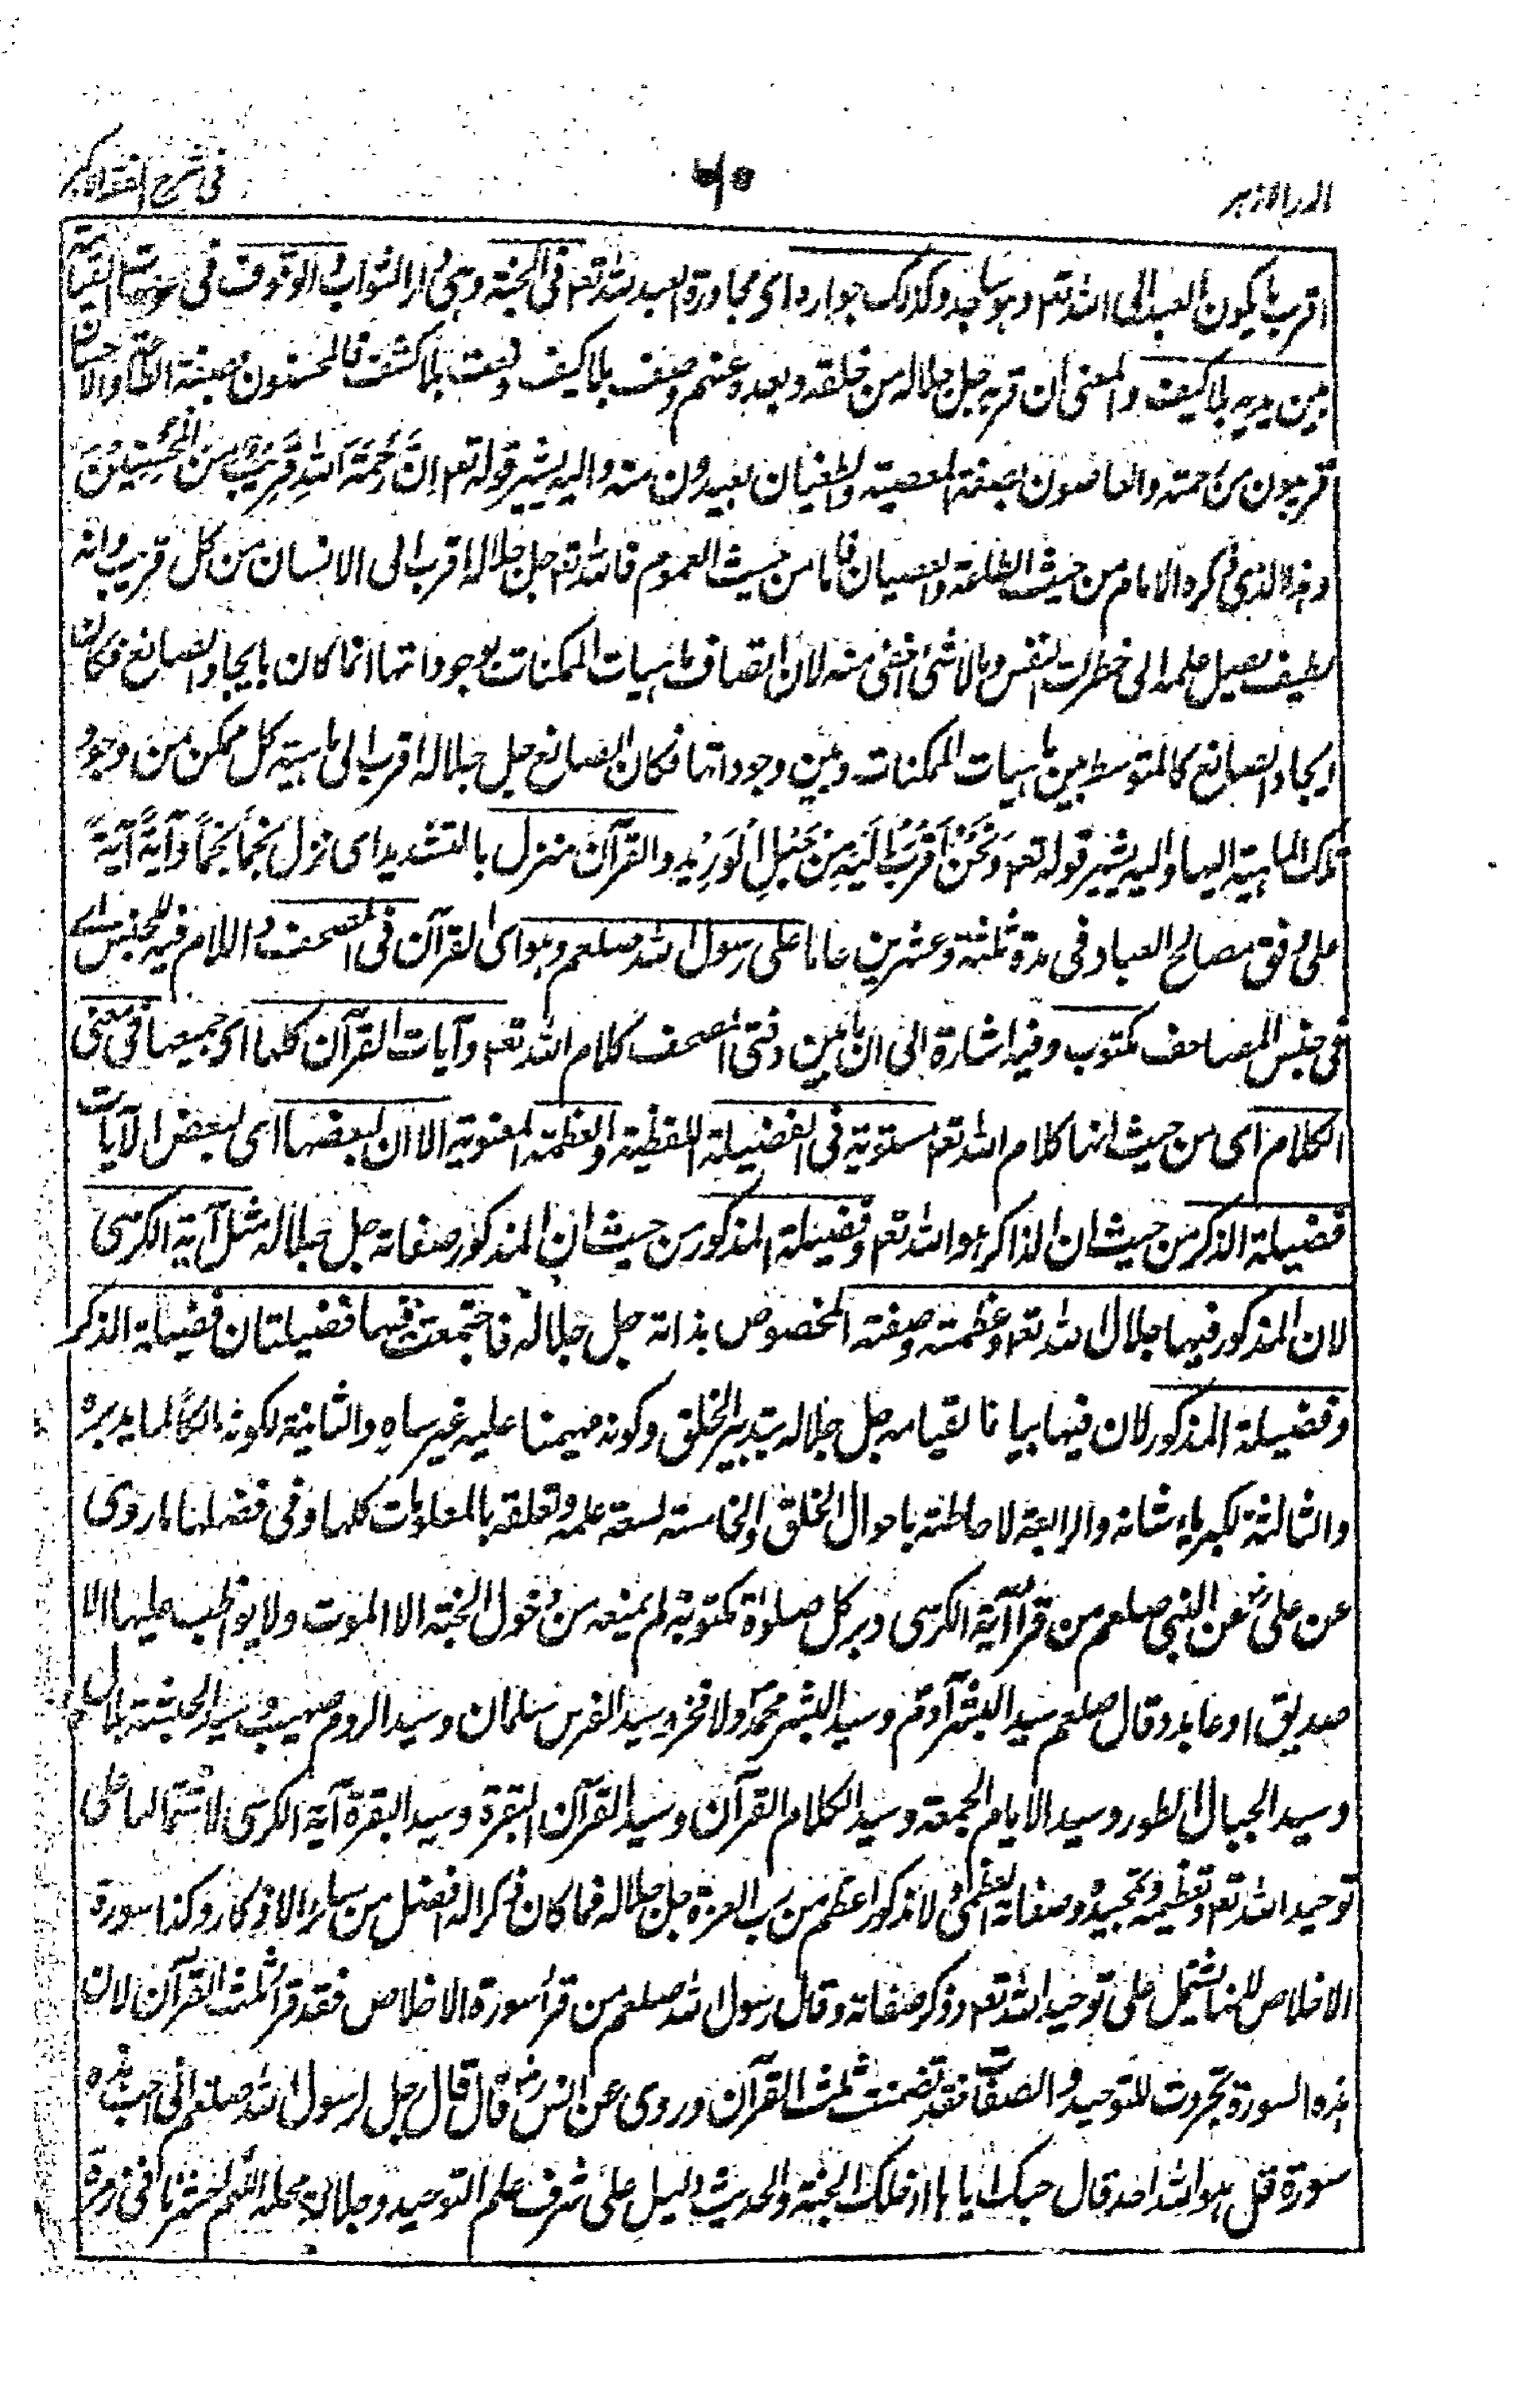 الدر الازهر
في شرح الفقه الاكبر
اقرب ما يكون العبد الى الله تعه وهو ساجد وكذلك جواره اى مجاورة العبد لله تعه في الجنة وهي دار الثواب والوقوف في عرصات القيامة
بين يديه بلا كيف والمعنى ان قربه جل جلاله من خلقه وبعده عنهم وصف بلا كيف ونعت بلا كشف فالمحسنون بصفة الطاعة والاحسان
قريبون من رحمته والعاصون بصفة المعصية والطغيان بعيدون منه واليه يشير قوله تعه اِنَّ رَحْمَةَ اللهِ قَرِيْبٌ مِنَ الْمُحْسِنِيْنَ
وهذا الذي ذكره الامام من حيث الطاعة والعصيان فاما من حيث العموم فالله تعه جل جلاله اقرب الى الانسان من كل قريب وانه
لطيف يصيل علمه الى خطرات النفس وما لا شئ اخفى منه لان اتصاف ماهيات الممكنات بوجوداتها انما كان بايجاد الصانع فكان
ايجاد الصانع كالمتوسط بين ماهيات الممكنات وبين وجوداتها فكان الصانع جل جلاله اقرب الى ماهية كل ممكن من وجود
تلك الماهية اليها واليه يشير قوله تعه وَنَحْنُ اَقْرَبُ اِلَيْهِ مِنْ حَبْلِ الْوَرِيْدِ والقرآن منزل بالتشديد اى نزل نجمًا نجمًا وآيةً آيةً
على وفق مصالح العباد في مدة ثلثة وعشرين عاما على رسول الله صلعم وهو اى القرآن في المصحف واللام فيه للجنس اے
في جنس المصاحف مكتوب وفيه اشارة الى ان ما بين دفتى المصحف كلام الله تعه وآيات القرآن كلها اى جميعها في معنى
الكلام اى من حيث انها كلام الله تعه مستوية في الفضيلة اللفظية والعظمة المعنوية الا ان لبعضها اى لبعض الآيات
فضيلة الذكر من حيث ان الذاكر هو الله تعه وفضيلة المذكور من حيث ان المذكور صفاته جل جلاله مثل آية الكرسى
لان المذكور فيها جلال الله تعه وعظمته وصفته المخصوص بذاته جل جلاله فاجتمعت فيها فضيلتان فضيلة الذكر
وفضيلة المذكور لان فيها بيانا لقيامه جل جلاله بتدبير الخلق وكونه مهيمنا عليه غير ساهٍ والثانية لكونه مالكًا لما يدبره
والثالثة لكبرياء شانه والرابعة لاحاطته باحوال الخلق والخامسة لسعة علمه وتعلقه بالمعلومات كلها وفي فضلها ما روى
عن على رض عن النبي صلعم من قرأ آية الكرسى دبر كل صلوٰة مكتوبة لم يمنعه من دخول الجنة الا الموت ولا يواظب عليها الا
صديق او عابد وقال صلعم سيد البشر آدم وسيد البشر محمد ولا فخر وسيد الفرس سلمان وسيد الروم صهيب وسيد الحبشة بلال
وسيد الجبال الطور وسيد الايام الجمعة وسيد الكلام القرآن وسيد القرآن البقرة وسيد البقرة آية الكرسى لاشتمالها على
توحيد الله تعه وتعظيمه وتمجيده وصفاته العظمى ولا مذكور اعظم من رب العزة جل جلاله فما كان ذكرا له افضل من سائر الاذكار وكذا سورة
الاخلاص لانها يشتمل على توحيد الله تعه وذكر صفاته وقال رسول الله صلعم من قرأ سورة الاخلاص فقد قرأ ثلث القرآن لان
هذه السورة تجردت للتوحيد والصفات فقد تضمنت ثلث القرآن وروى عن انس رض قال قال رجل لرسول الله صلعم انى احب هذه
سورة قل هو الله احد قال حبك اياها ادخلك الجنة والحديث دليل على شرف علم التوحيد وجلالة محله اللهم احشرنا في زمرة